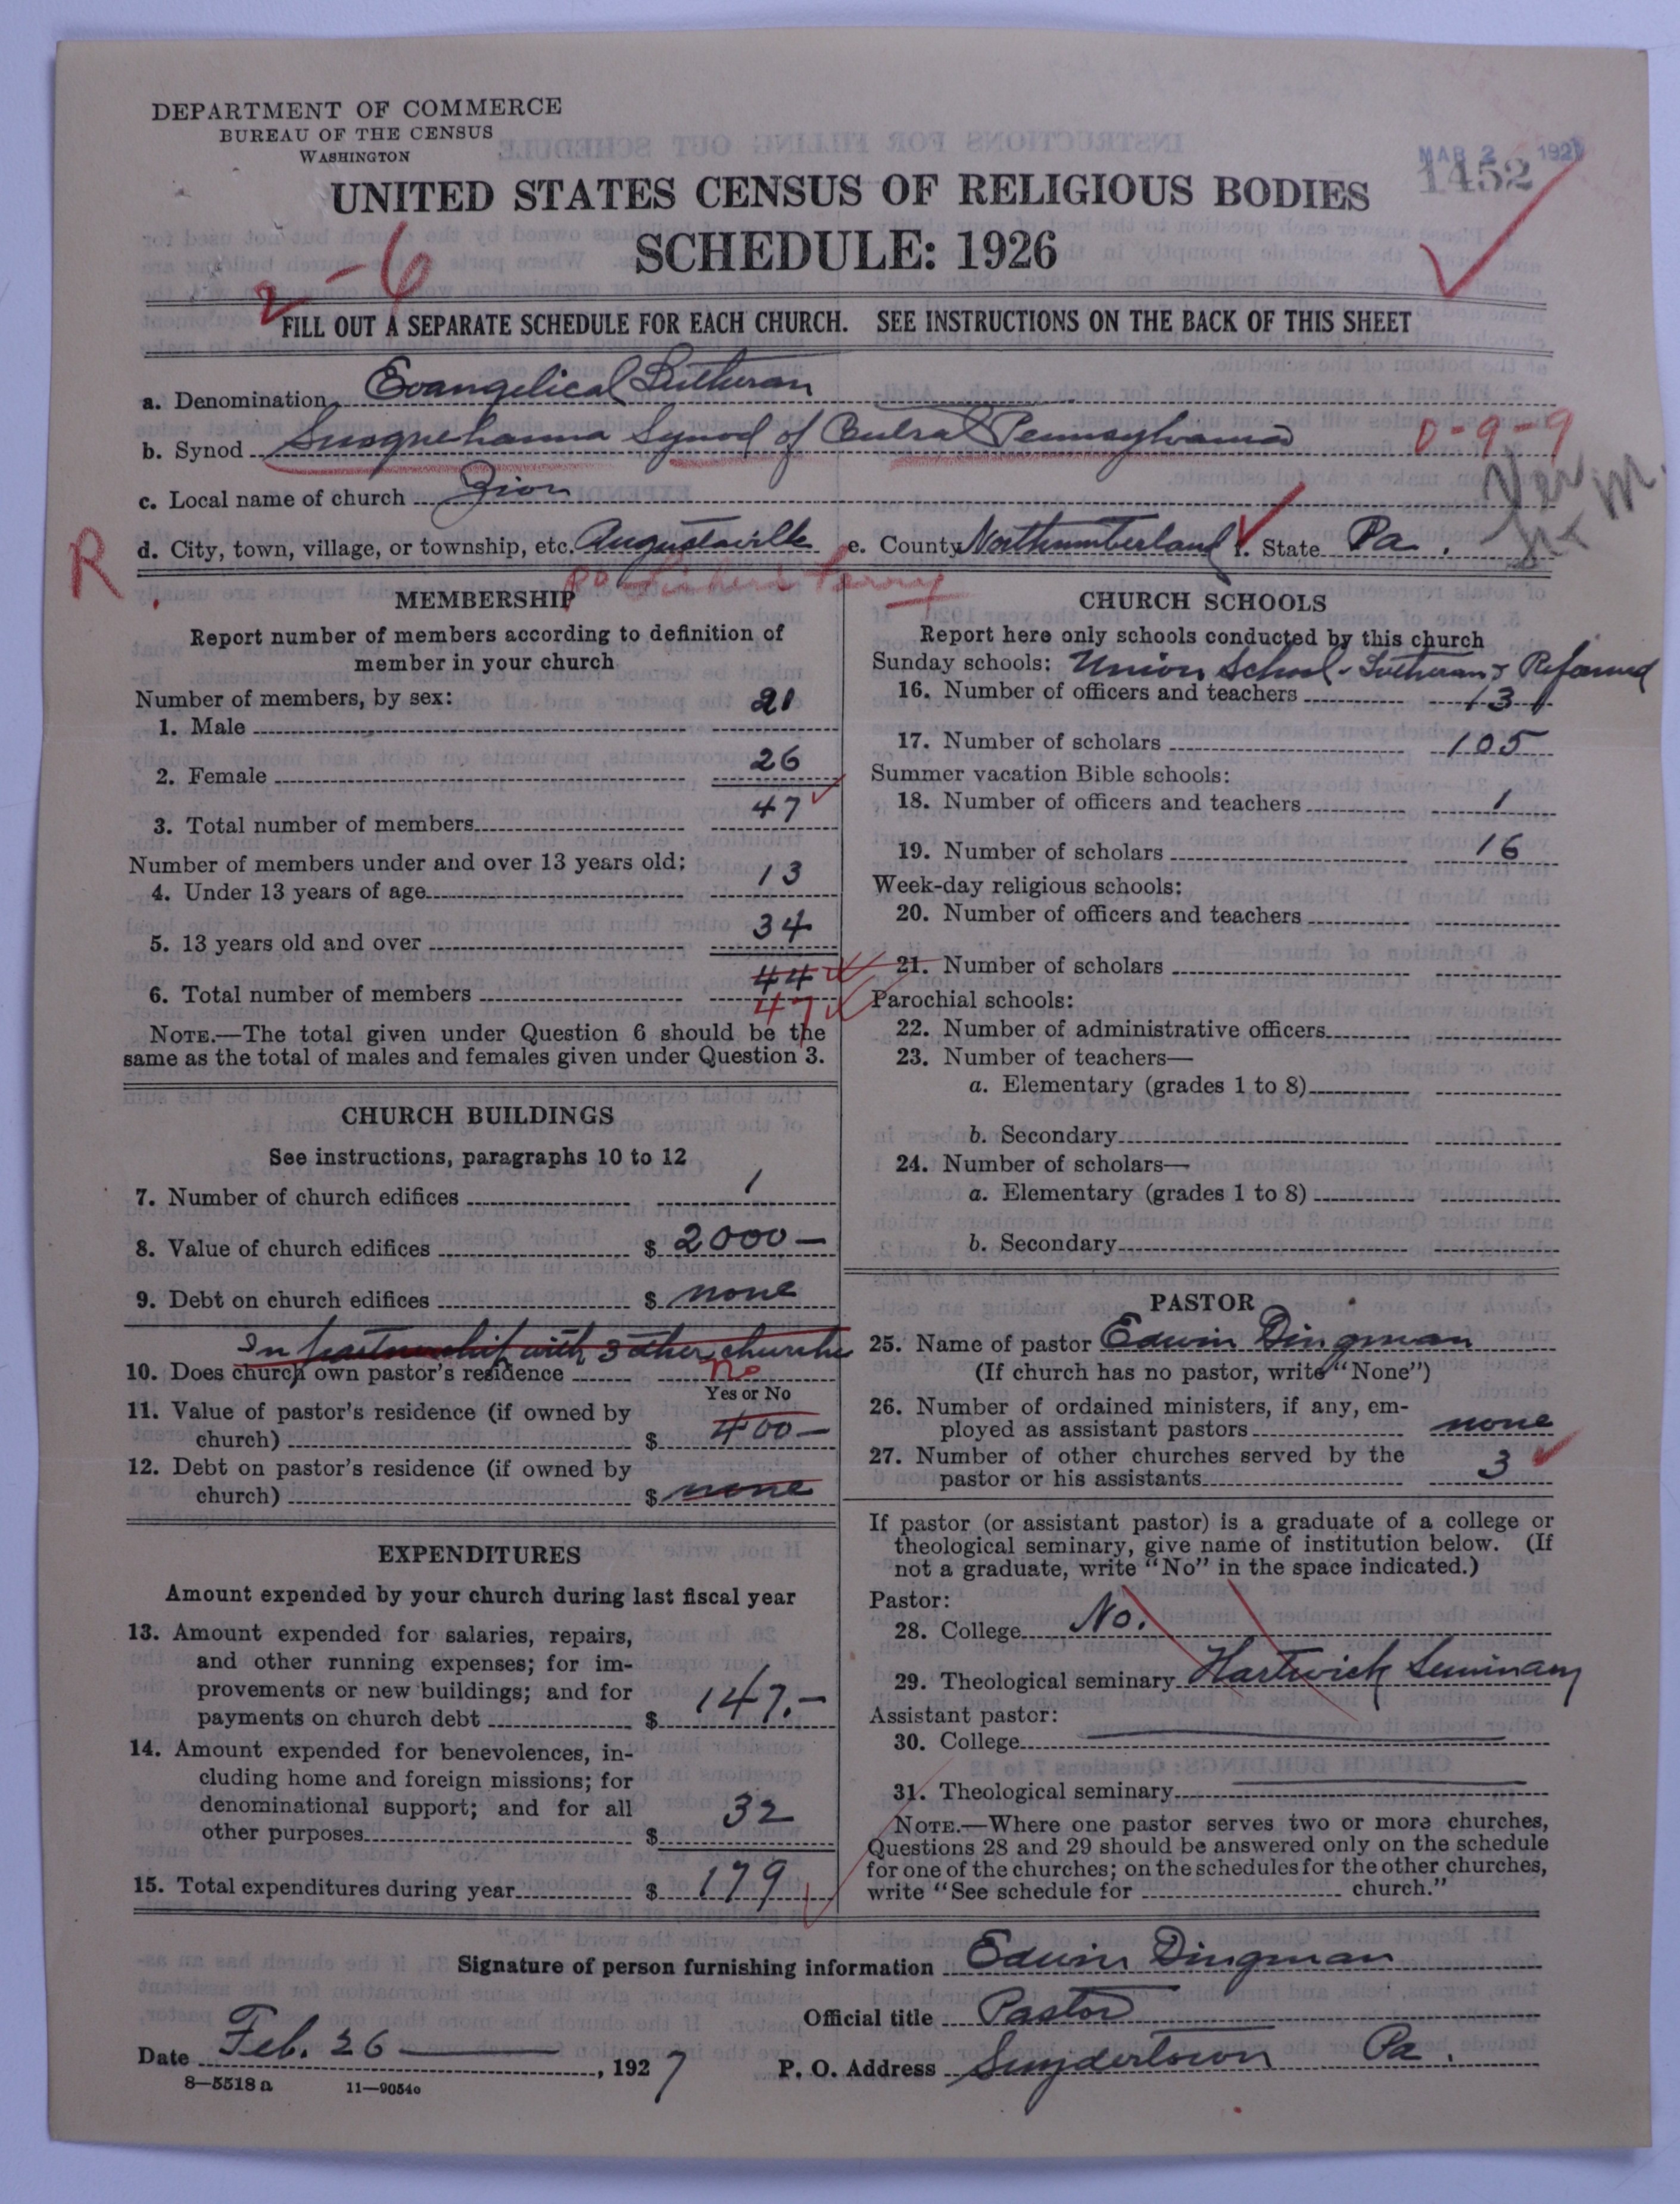 DEPARTMENT OF COMMERCE
BUREAU OF THE CENSUS
WASHINGTON
MAR 2 192
1452
UNITED STATES CENSUS OF RELIGIOUS BODIES
SCHEDULE: 1926
2-6
FILL OUT A SEPARATE SCHEDULE FOR EACH CHURCH. SEE INSTRUCTIONS ON THE BACK OF THIS SHEET
a. Denomination Evangelical Lutheran
b. Synod Susquehanna Synod of Central Pennsylvania
0-9-9
Ver
c. Local name of church Zion
R.
d. City, town, village, or township, etc. Augustaville e. County Northumberland f. State Pa.
Po Fishers Ferry
MEMBERSHIP
Report number of members according to definition of
member in your church
Number of members, by sex:
1. Male 21
2. Female 26
3. Total number of members 47
Number of members under and over 13 years old:
4. Under 13 years of age 13
5. 13 years old and over 34
44
6. Total number of members 47
NOTE.—The total given under Question 6 should be the
same as the total of males and females given under Question 3.
CHURCH BUILDINGS
See instructions, paragraphs 10 to 12
7. Number of church edifices 1
8. Value of church edifices $ 2000 —
9. Debt on church edifices $ none
In partnership with 3 other churches
10. Does church own pastor's residence no
Yes or No
11. Value of pastor's residence (if owned by
church) $ 400 —
12. Debt on pastor's residence (if owned by
church) $ none
EXPENDITURES
Amount expended by your church during last fiscal year
13. Amount expended for salaries, repairs,
and other running expenses; for im-
provements or new buildings; and for
payments on church debt $ 147.—
14. Amount expended for benevolences, in-
cluding home and foreign missions; for
denominational support; and for all
other purposes $ 32
15. Total expenditures during year $ 179
CHURCH SCHOOLS
Report here only schools conducted by this church
Sunday schools: Union School - Lutheran & Reformed
16. Number of officers and teachers 13
17. Number of scholars 105
Summer vacation Bible schools:
18. Number of officers and teachers 1
19. Number of scholars 16
Week-day religious schools:
20. Number of officers and teachers
21. Number of scholars
Parochial schools:
22. Number of administrative officers
23. Number of teachers—
a. Elementary (grades 1 to 8)
b. Secondary
24. Number of scholars—
a. Elementary (grades 1 to 8)
b. Secondary
PASTOR
25. Name of pastor Edwin Dingman
(If church has no pastor, write "None")
26. Number of ordained ministers, if any, em-
ployed as assistant pastors none
27. Number of other churches served by the
pastor or his assistants 3
If pastor (or assistant pastor) is a graduate of a college or
theological seminary, give name of institution below. (If
not a graduate, write "No" in the space indicated.)
Pastor:
28. College No.
29. Theological seminary Hartwick Seminary
Assistant pastor:
30. College
31. Theological seminary
NOTE.—Where one pastor serves two or more churches,
Questions 28 and 29 should be answered only on the schedule
for one of the churches; on the schedules for the other churches,
write "See schedule for church."
Signature of person furnishing information Edwin Dingman
Official title Pastor
Date Feb. 26 —, 1927
P. O. Address Snydertown Pa.
8—5518 a 11—9054o